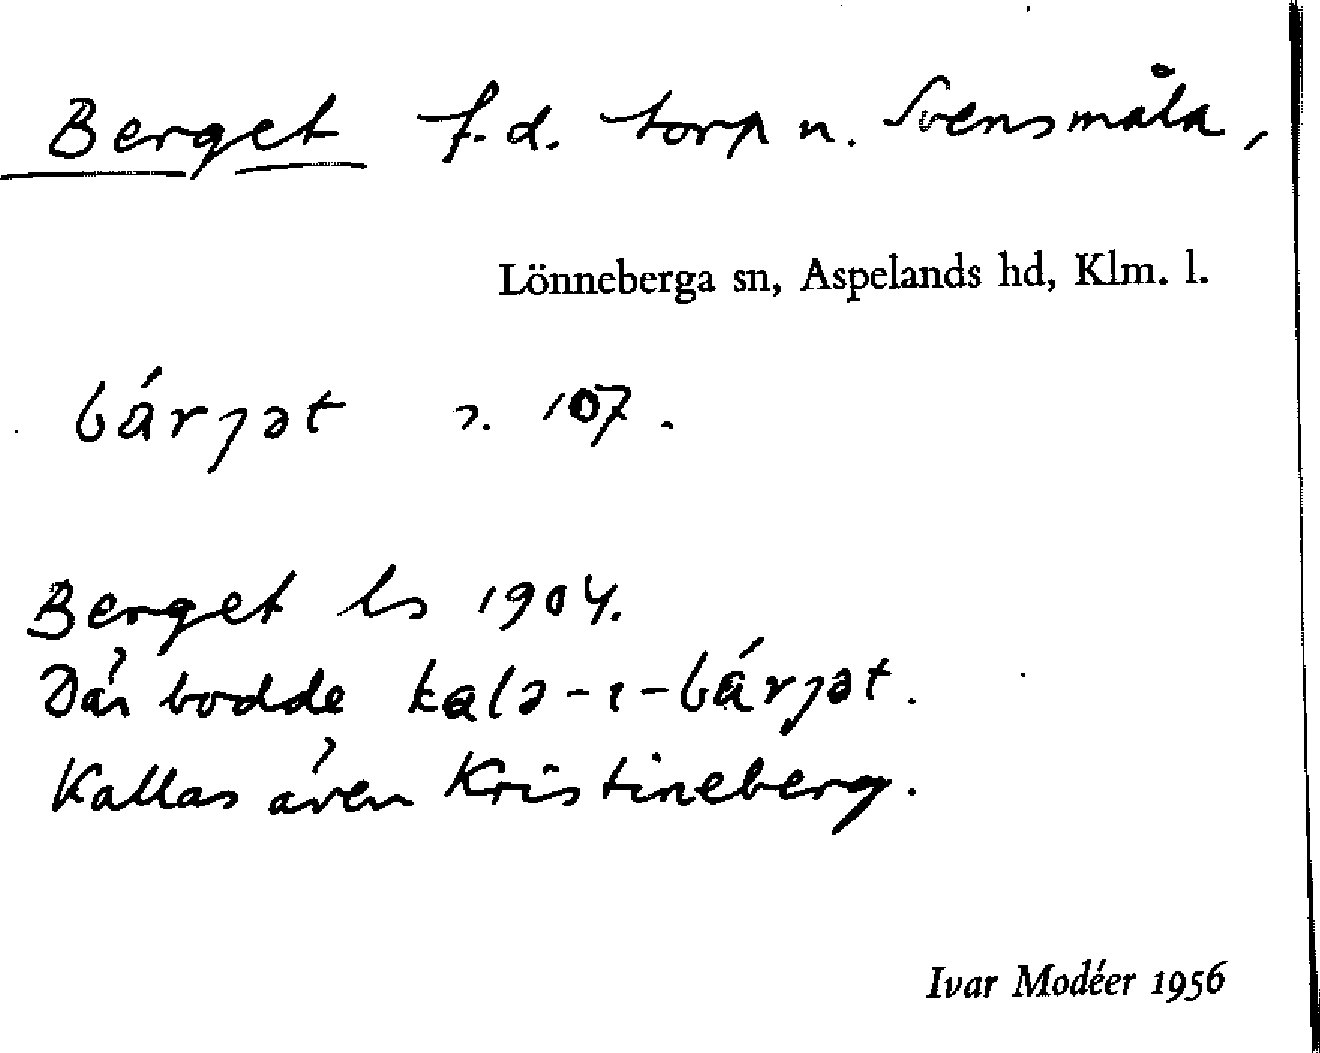 Berget f.d. torp n. Svensmåla,
Lönneberga sn, Aspelands hd, Klm. l.
bárȷət 2. 107.
Berget ls 1904.
Där bodde kalə-ı-bárȷət.
Kallas även Kristineberg.
Ivar Modéer 1956